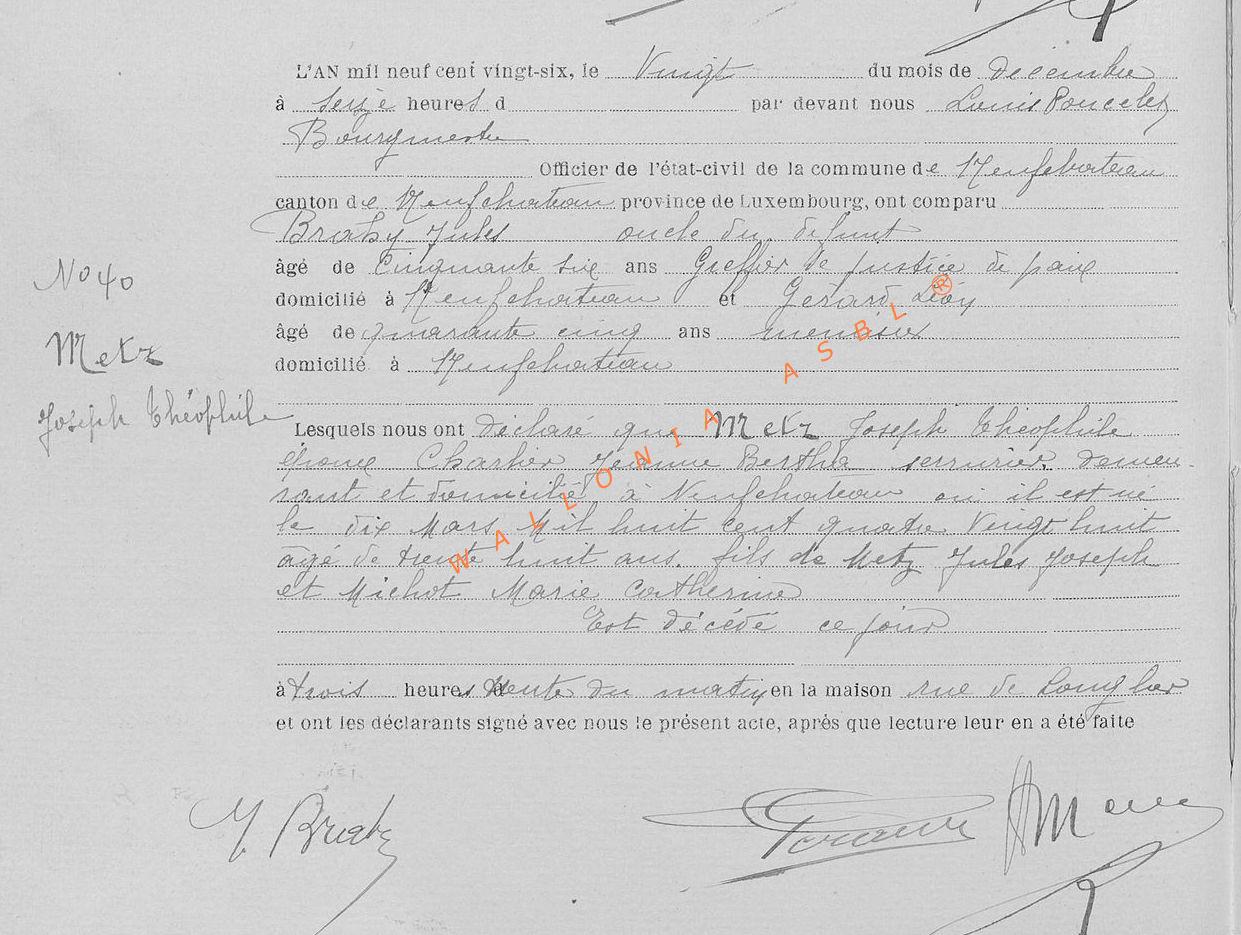 L'AN mil neuf cent vingt-six, le Vingt du mois de décembre
à seize heures d par devant nous Louis Poncelet
Bourgmestre
Officier de l'état-civil de la commune de Neufchateau
canton de Neufchateau province de Luxembourg, ont comparu
Braby Jules oncle du défunt
âgé de Cinquante six ans Greffier de justice de paix
N° 40
domicilié à Neufchateau et Gérard Léon
âgé de quarante cinq ans menuisier
Metz
domicilié à Neufchateau
Joseph Théophile
Lesquels nous ont déclaré que Metz Joseph Théophile
époux Charlier Jeanne Bertha serrurier demeu-
rant et domicilié à Neufchateau où il est né
le dix Mars Mil huit cent quatre Vingt huit
agé de trente huit ans. fils de Metz Jules Joseph
et Michot Marie Catherine
Est décédé ce jour
à trois heures trente du matin en la maison rue de Longlier
et ont les déclarants signé avec nous le présent acte, après que lecture leur en a été faite
J. Braby
WALLONIA ASBL ®